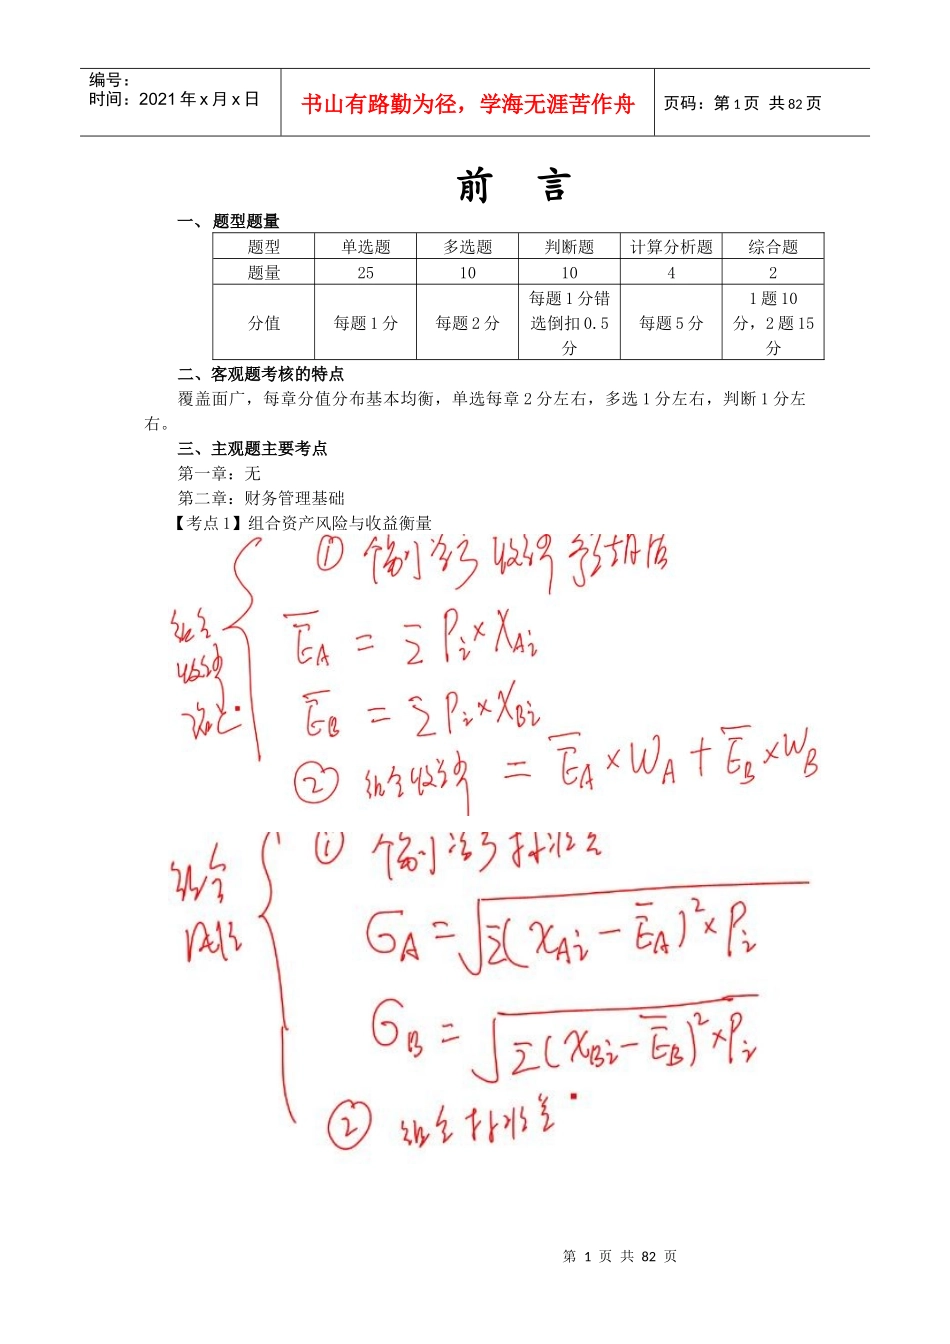 编号：
时间：2021年x月x日
书山有路勤为径，学海无涯苦作舟
页码：第1页 共82页
前 言
一、题型题量
题型 单选题 多选题 判断题 计算分析题 综合题
题量 25 10 10 4 2
分值 每题1分 每题2分 每题1分错选倒扣0.5分 每题5分 1题10分，2题15分
二、客观题考核的特点
覆盖面广，每章分值分布基本均衡，单选每章2分左右，多选1分左右，判断1分左
右。
三、主观题主要考点
第一章：无
第二章：财务管理基础
【考点1】组合资产风险与收益衡量
① 个别资产收益率预期值
组合
收益率
E̅A = Σ Pi×XAi
E̅B = Σ Pi×XBi
② 组合收益率 = E̅A×WA+E̅B×WB
① 个别资产标准差
组合
风险
σA=√Σ(XAi-E̅A)²×Pi
σB=√Σ(XBi-E̅B)²×Pi
② 组合标准差
第 1 页 共 82 页